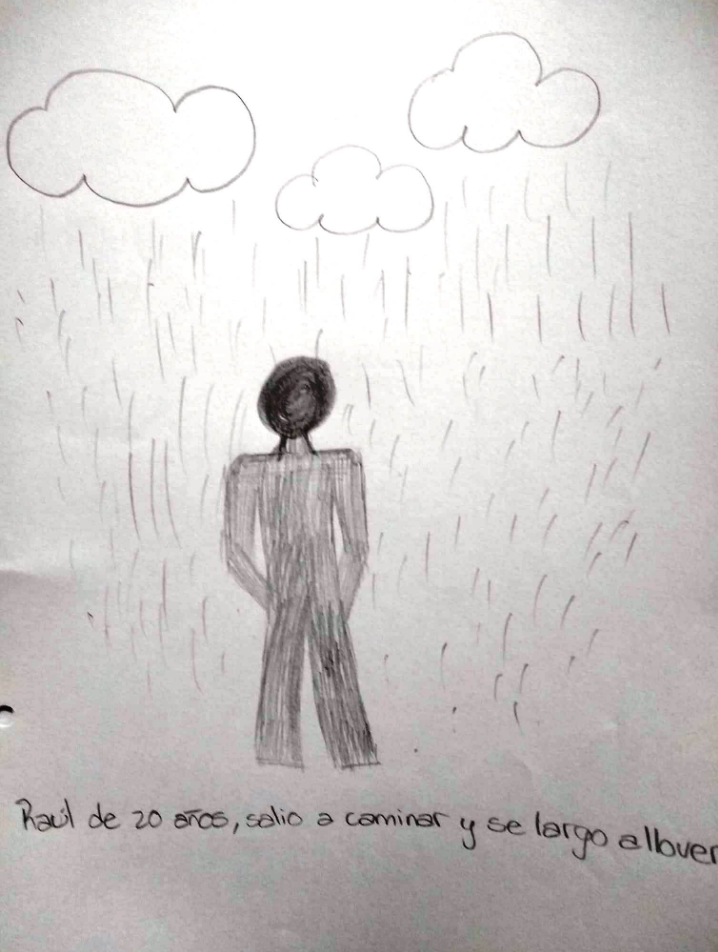 Raúl de 20 años, salio a caminar y se largo a llover